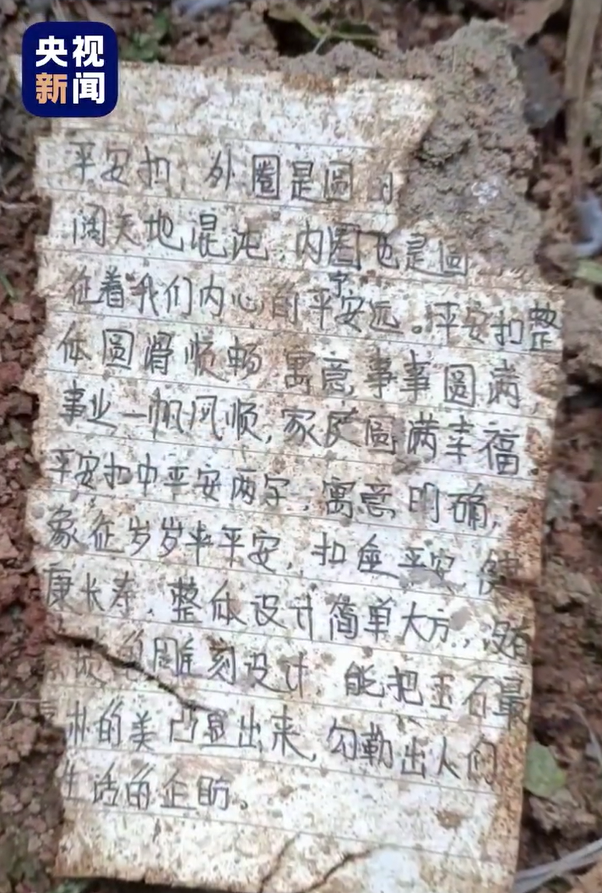 央视
新闻
平安扣 外圈是圆
阔天地混沌 内圈也是圆
征着我们内心的平安宁远。平安扣整
体圆滑顺畅 寓意事事圆满,
事业一帆风顺,家庭圆满幸福
平安扣中平安两字 寓意明确,
象征岁岁平平安,扣座平安 健
康长寿.整体设计简单大方,没有
雕刻设计 能把玉石最
的美凸显出来,勾勒出人们
生活的企盼。